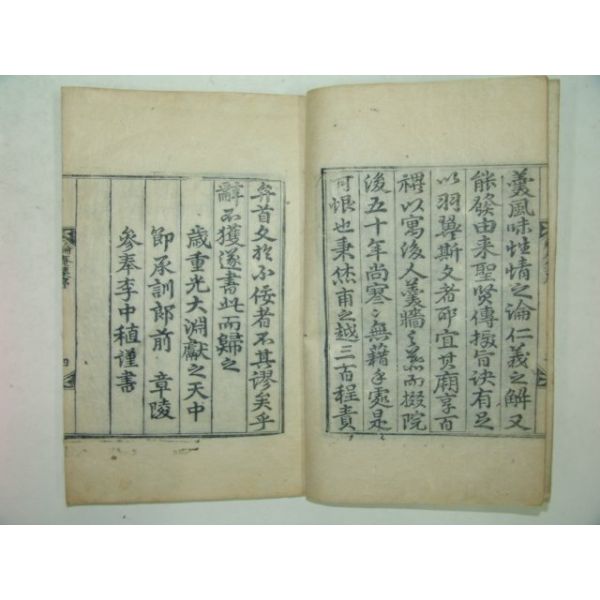 羹風味性情之論仁義之解又
能發由来聖賢傳授旨訣有足
以羽翼斯文者耶宜其廟享百
禩以寓後人羹牆之慕而掇院
後五十年尚寒〻無藉手處是
可恨也秉烋甫之越三百程責
弁首文於不侫者不其謬矣乎
辭不獲遂書此而歸之
歳重光大淵獻之天中
節承訓郎前 章陵
參奉李中稙謹書
四